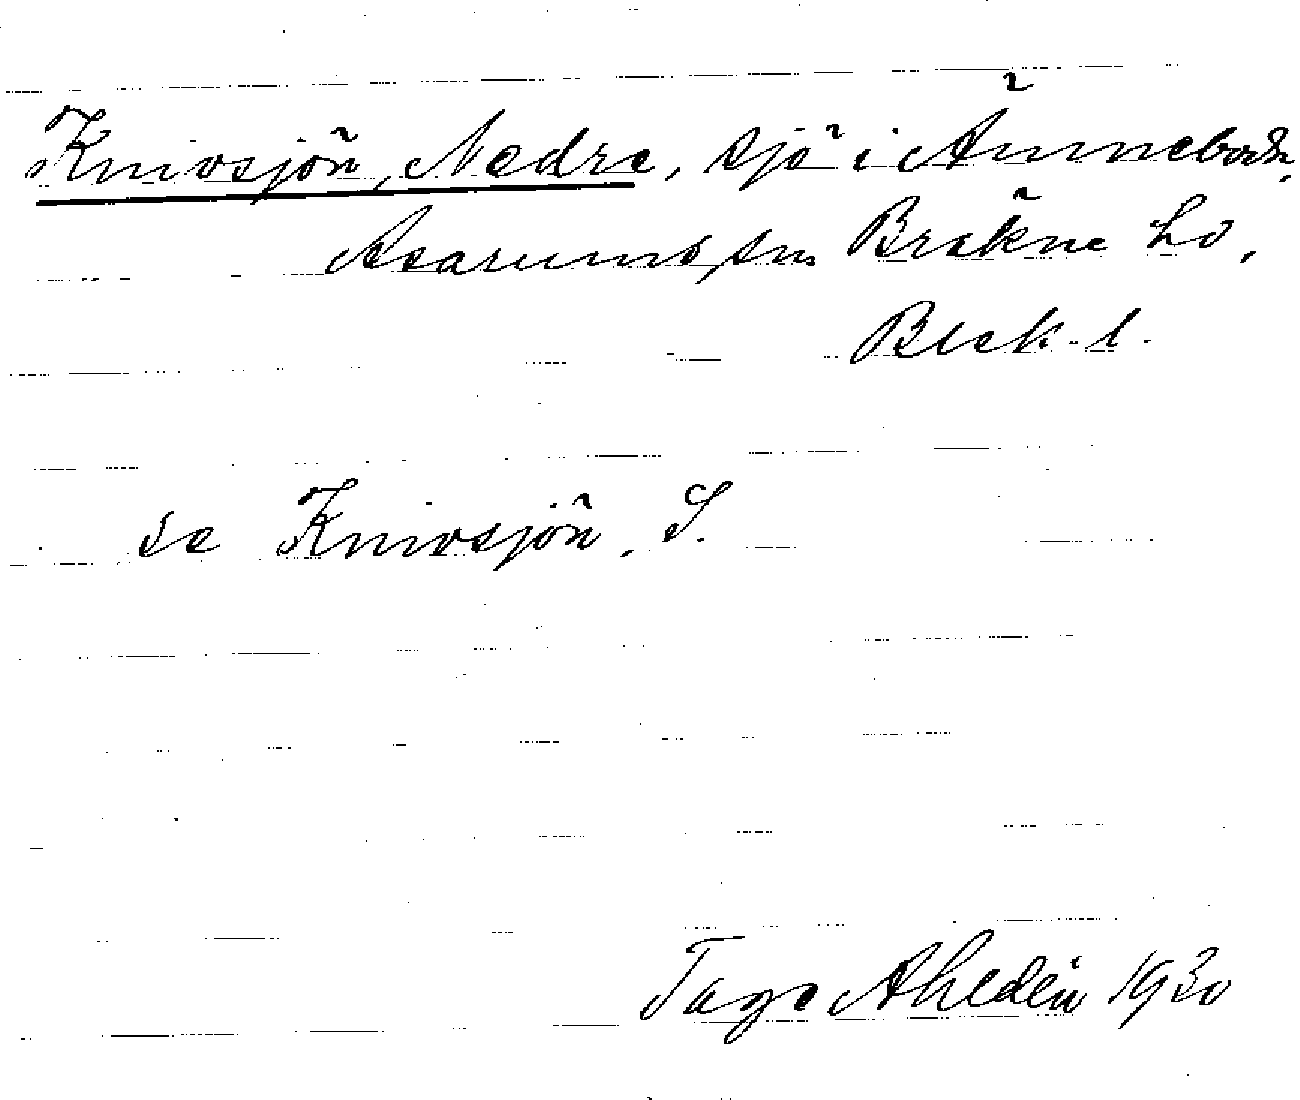 Knivsjön, Nedre, sjö i Änneboda,
Asarums sn. Bräkne hd,
Blek. l.
se Knivsjön, S.
Tage Ahldén 1930